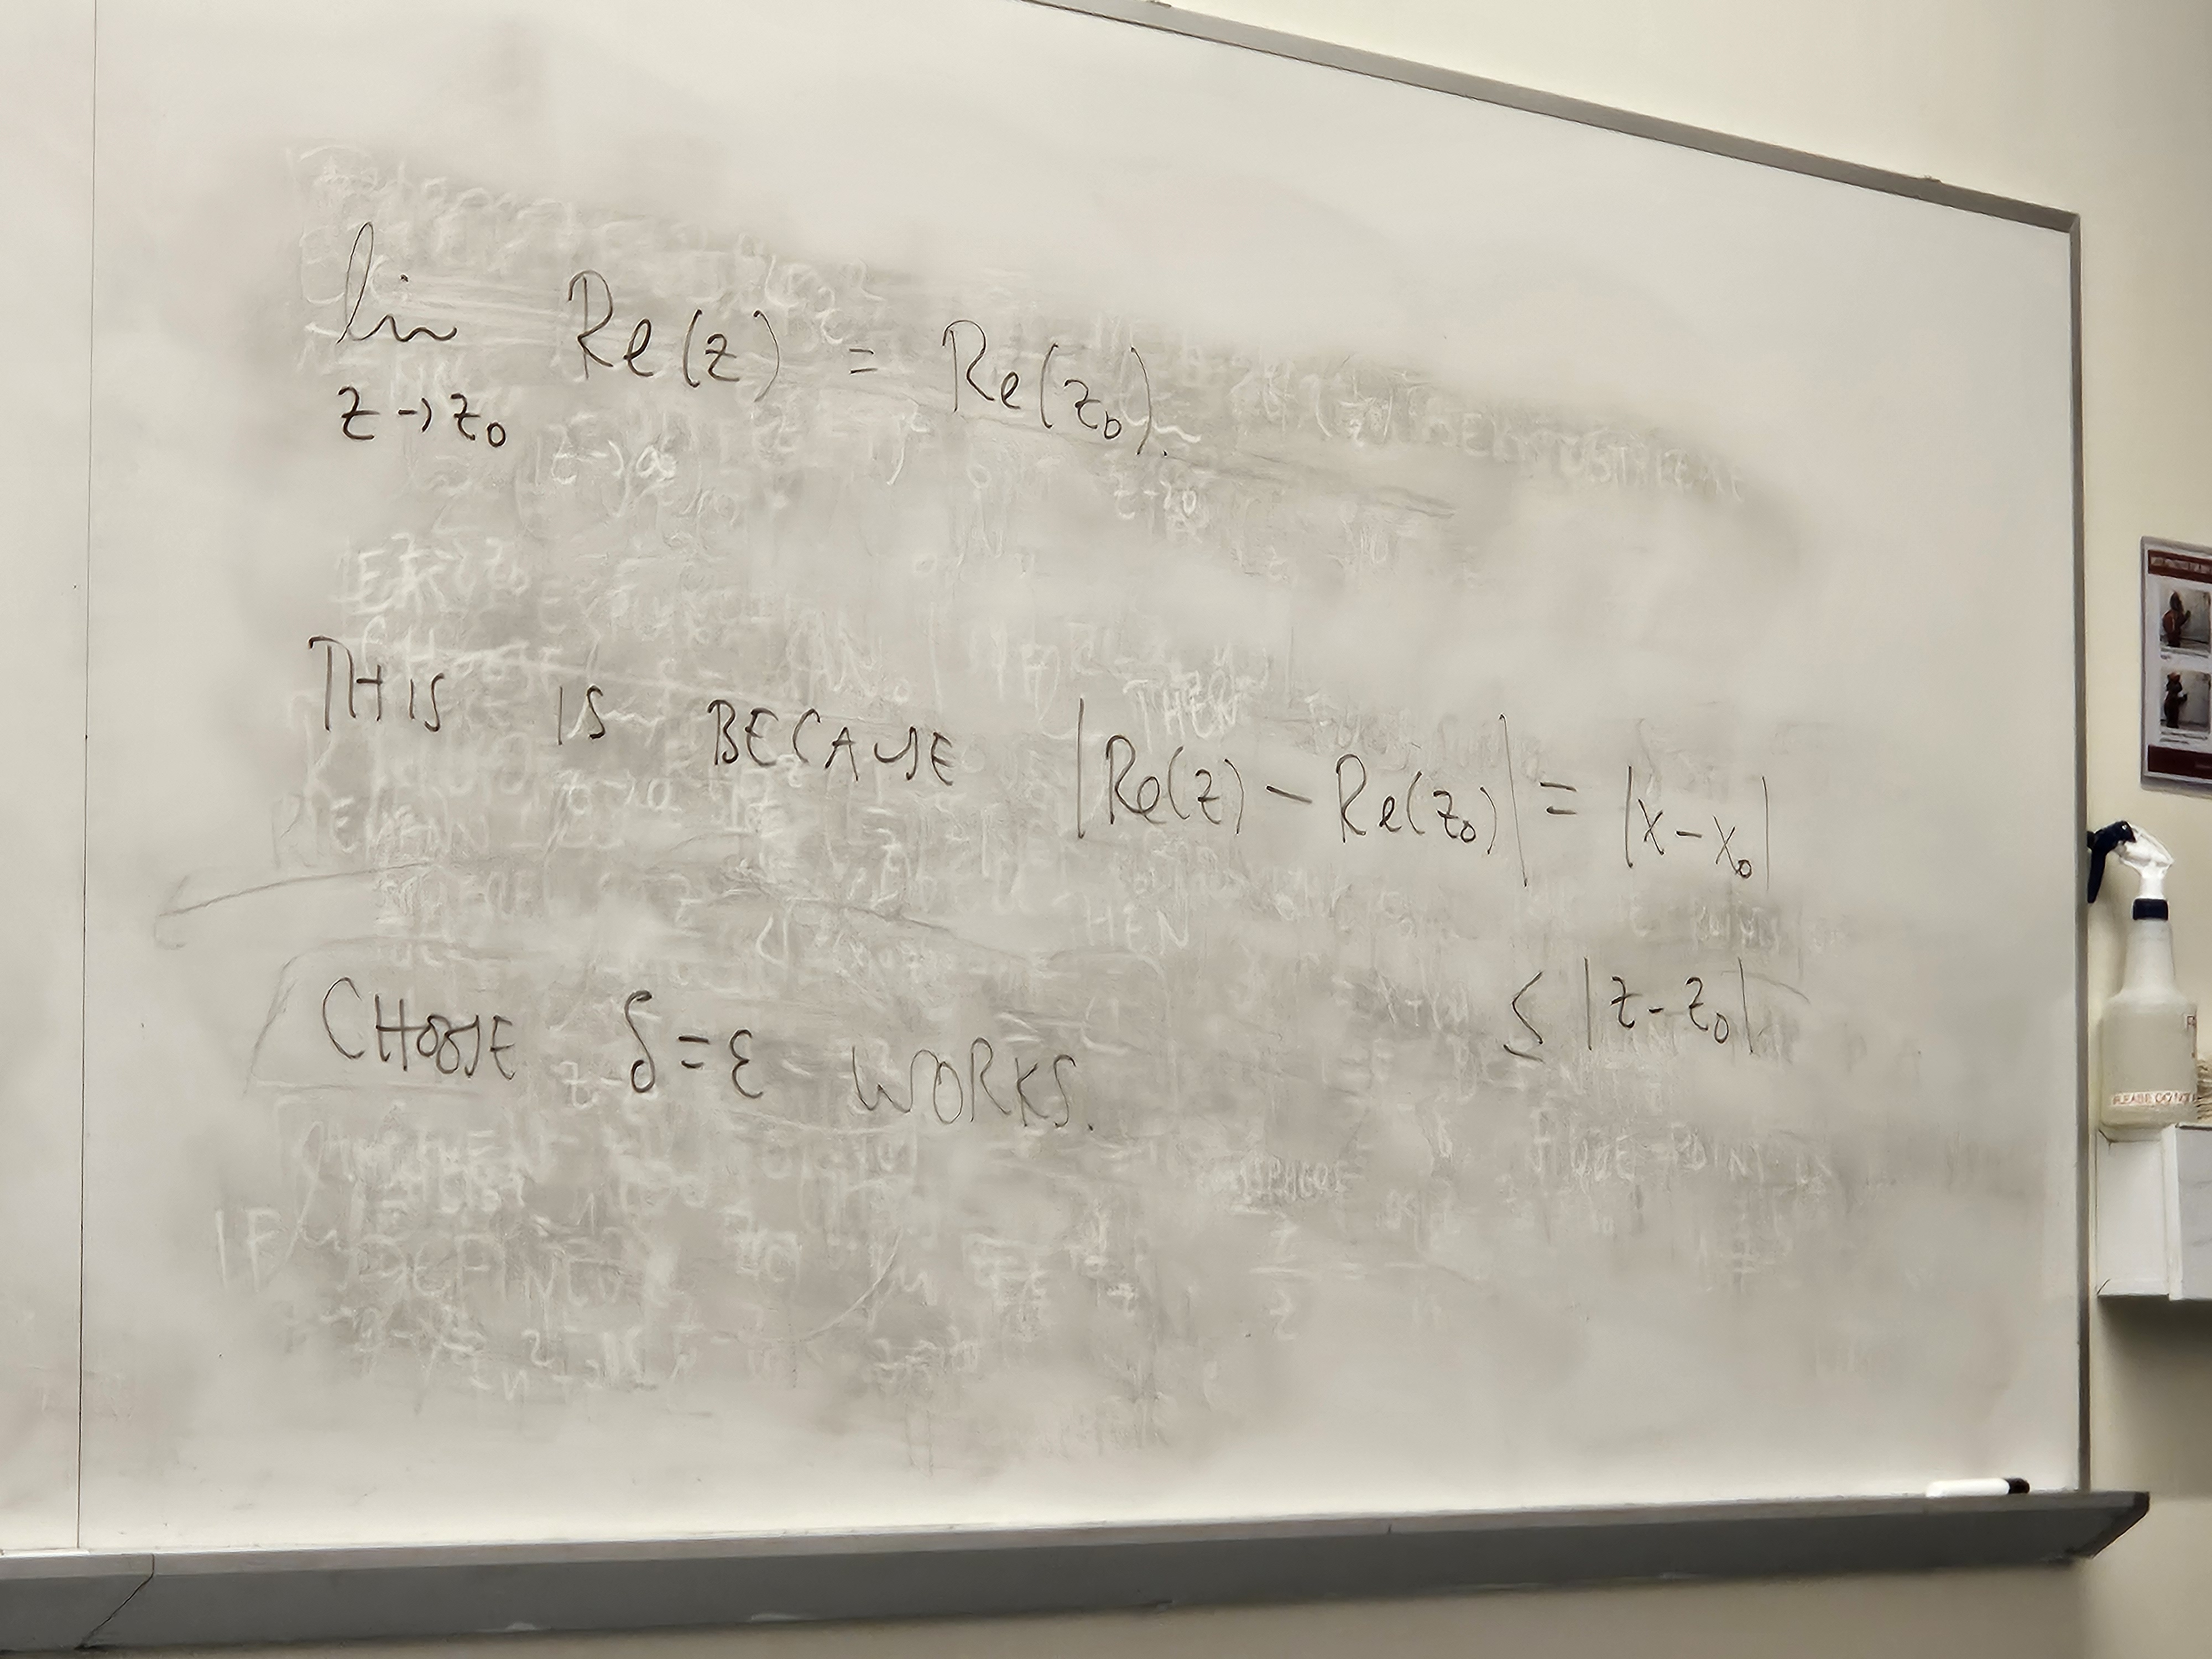 lim Re(z) = Re(z₀).
z→z₀
THIS IS BECAUSE |Re(z) − Re(z₀)| = |x − x₀|
≤ |z − z₀|.
CHOOSE δ = ε WORKS.